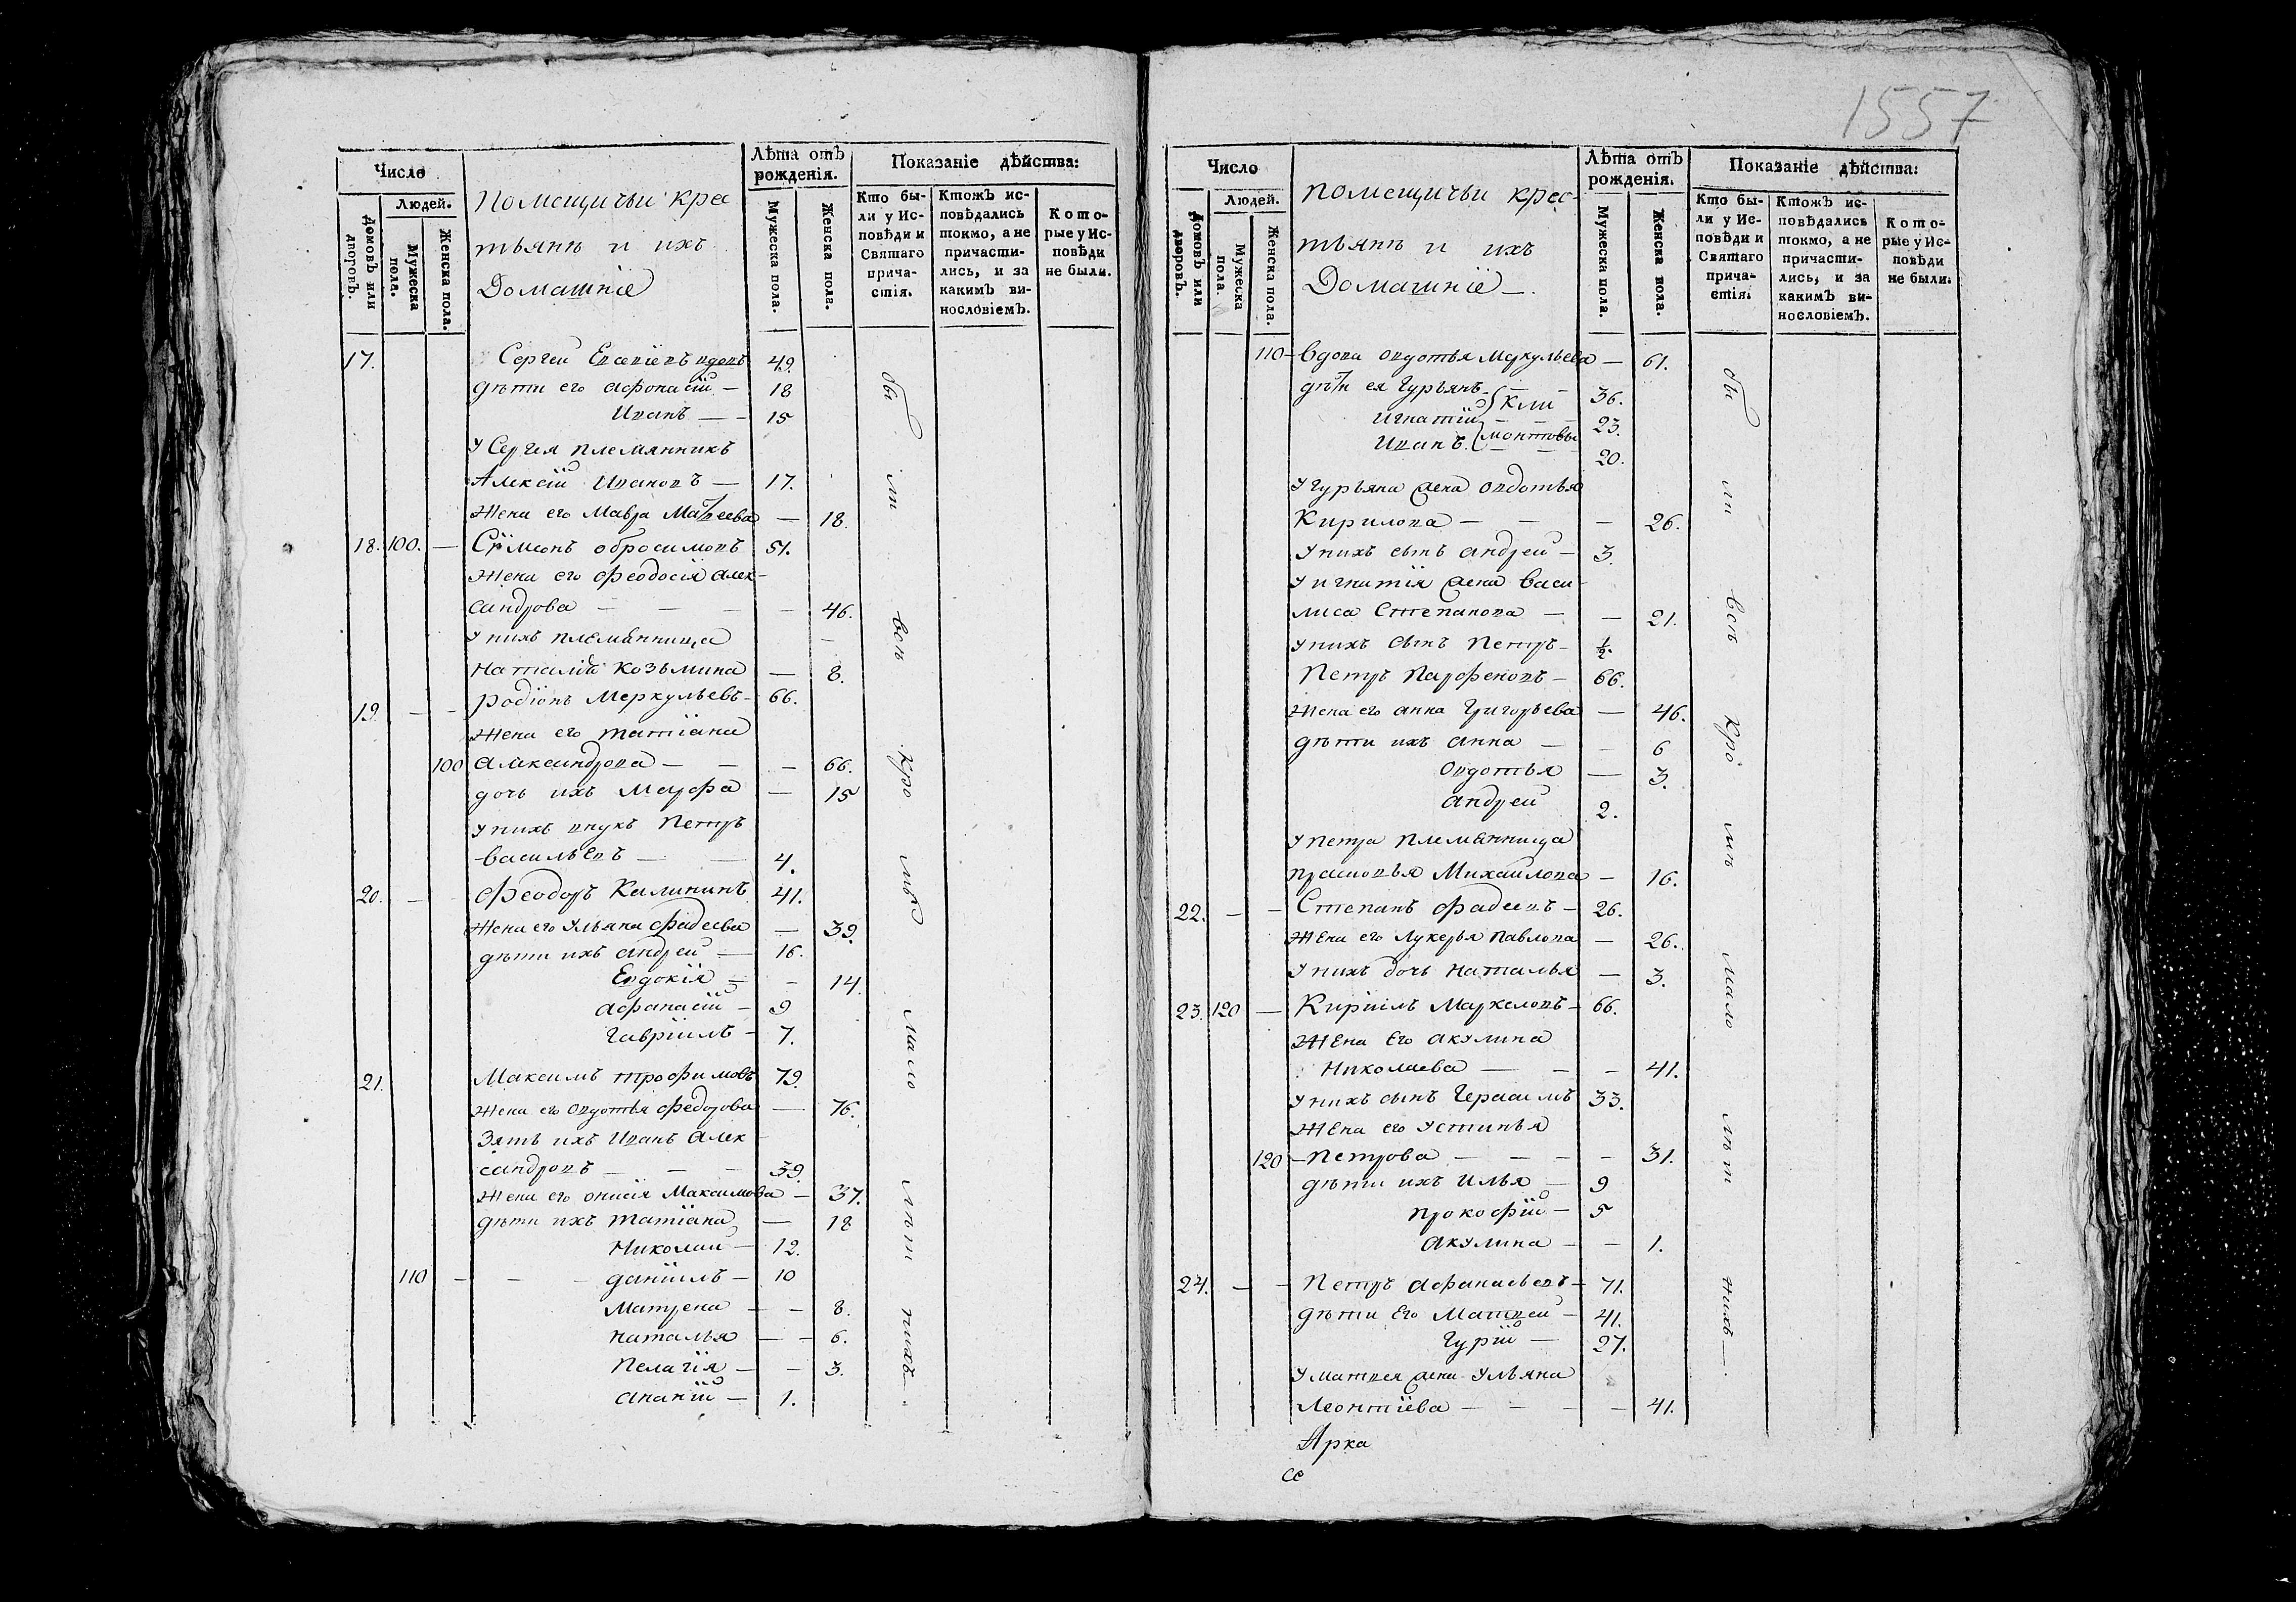 1557
Число
Людей.
Домовъ или дворовъ.
Мужеска пола.
Женска пола.
Помещичьи крес
тьянъ и ихъ
Домашніе
Лѣта отъ рожденія.
Мужеска пола.
Женска пола.
Показаніе дѣйства:
Кто бы-
ли у Ис-
повѣди и
Святаго
прича-
стія.
Ктожъ ис-
повѣдались
токмо, а не
причасти-
лись, и за
какимъ ви-
нословіемъ.
Кото-
рые у Ис-
повѣди
не были.
17. Сергей Евсевіевъ вдовъ 49.
дѣти его Афонасій – 18
Иванъ – – 15
У Сергея племянникъ
Алексій Ивановъ – 17.
Жена его Мавра Матвеева – 18.
18. 100. – Сѵмеонъ обросимовъ 51.
Жена его Феодосія Алек-
сандрова – – – – 46.
У нихъ племянница –
Наталія Козьмина – 8.
19. – – Родіонъ Меркульевъ – 66.
Жена его татіана
100 Александрова – – – 66.
дочь ихъ Марфа – 15
У нихъ внукъ Петръ
Васильевъ – – 4.
20. – Феодоръ Калининъ 41.
Жена его Ульяна Фадеева – 39.
дѣти ихъ Андрей – 16.
Евдокія – – 14.
Афанасій – 9
Гавріилъ – 7.
21. Максимъ трофимовъ 79.
Жена его Овдотья Федорова – 76.
Зять ихъ Иванъ Алек
сандровъ – – – 39.
Жена его Онисія Максимова – 37.
дѣти ихъ татіана – 18
Николай – 12.
110 – – – даніилъ – 10
Матрена – – 8.
Наталья – – 6.
Пелагія – – 3.
Ананій – 1.
бы ли всѣ кро мѣ мало лѣт нихъ –
Число
Людей.
Домовъ или дворовъ.
Мужеска пола.
Женска пола.
помещичьи крес-
тьянъ и ихъ
Домашніе –
Лѣта отъ рожденія.
Мужеска пола.
Женска пола.
Показаніе дѣйства:
Кто бы-
ли у Ис-
повѣди и
Святаго
прича-
стія.
Ктожъ ис-
повѣдались
токмо, а не
причасти-
лись, и за
какимъ ви-
нословіемъ.
Кото-
рые у Ис-
повѣди
не были.
110 – Вдова Овдотья Меркульева – 61.
дѣти ея Гурьянъ – – 36.
Игнатій Кли – 23.
Иванъ монтовы 20.
У Гурьяна жена Овдотья
Кирилова – – – 26.
У нихъ сынъ Андрей – 3.
У игнатія жена Васи-
лиса Степанова – – 21.
У нихъ сынъ Петръ – ½.
Петръ Парфеновъ – 66.
Жена его Анна Григорьева – 46.
дѣти ихъ Анна – – 6
Овдотья – 3.
Андрей 2.
У петра племянница
прасковья Михаилова – 16.
22. – – Степанъ Фадеевъ – 26.
Жена его Лукерья Павлова – 26.
У нихъ дочь Наталья – 3.
23. 120 – Кирилъ Маркеловъ – 66.
Жена Его Акулина
Николаева – – – 41.
У нихъ сынъ Герасимъ 33.
Жена его Устинья
120 – Петрова – – – – 31.
дѣти ихъ Илья – 9
Прокофій – 5
Акулина – – 1.
24. – – Петръ Афанасьевъ – 71.
дѣти Его Матвей – 41.
Гурій – 27.
У матвея жена Ульяна
Леонтіева – – – – 41.
бы ли всѣ кро мѣ мало лѣт нихъ –
Ярка